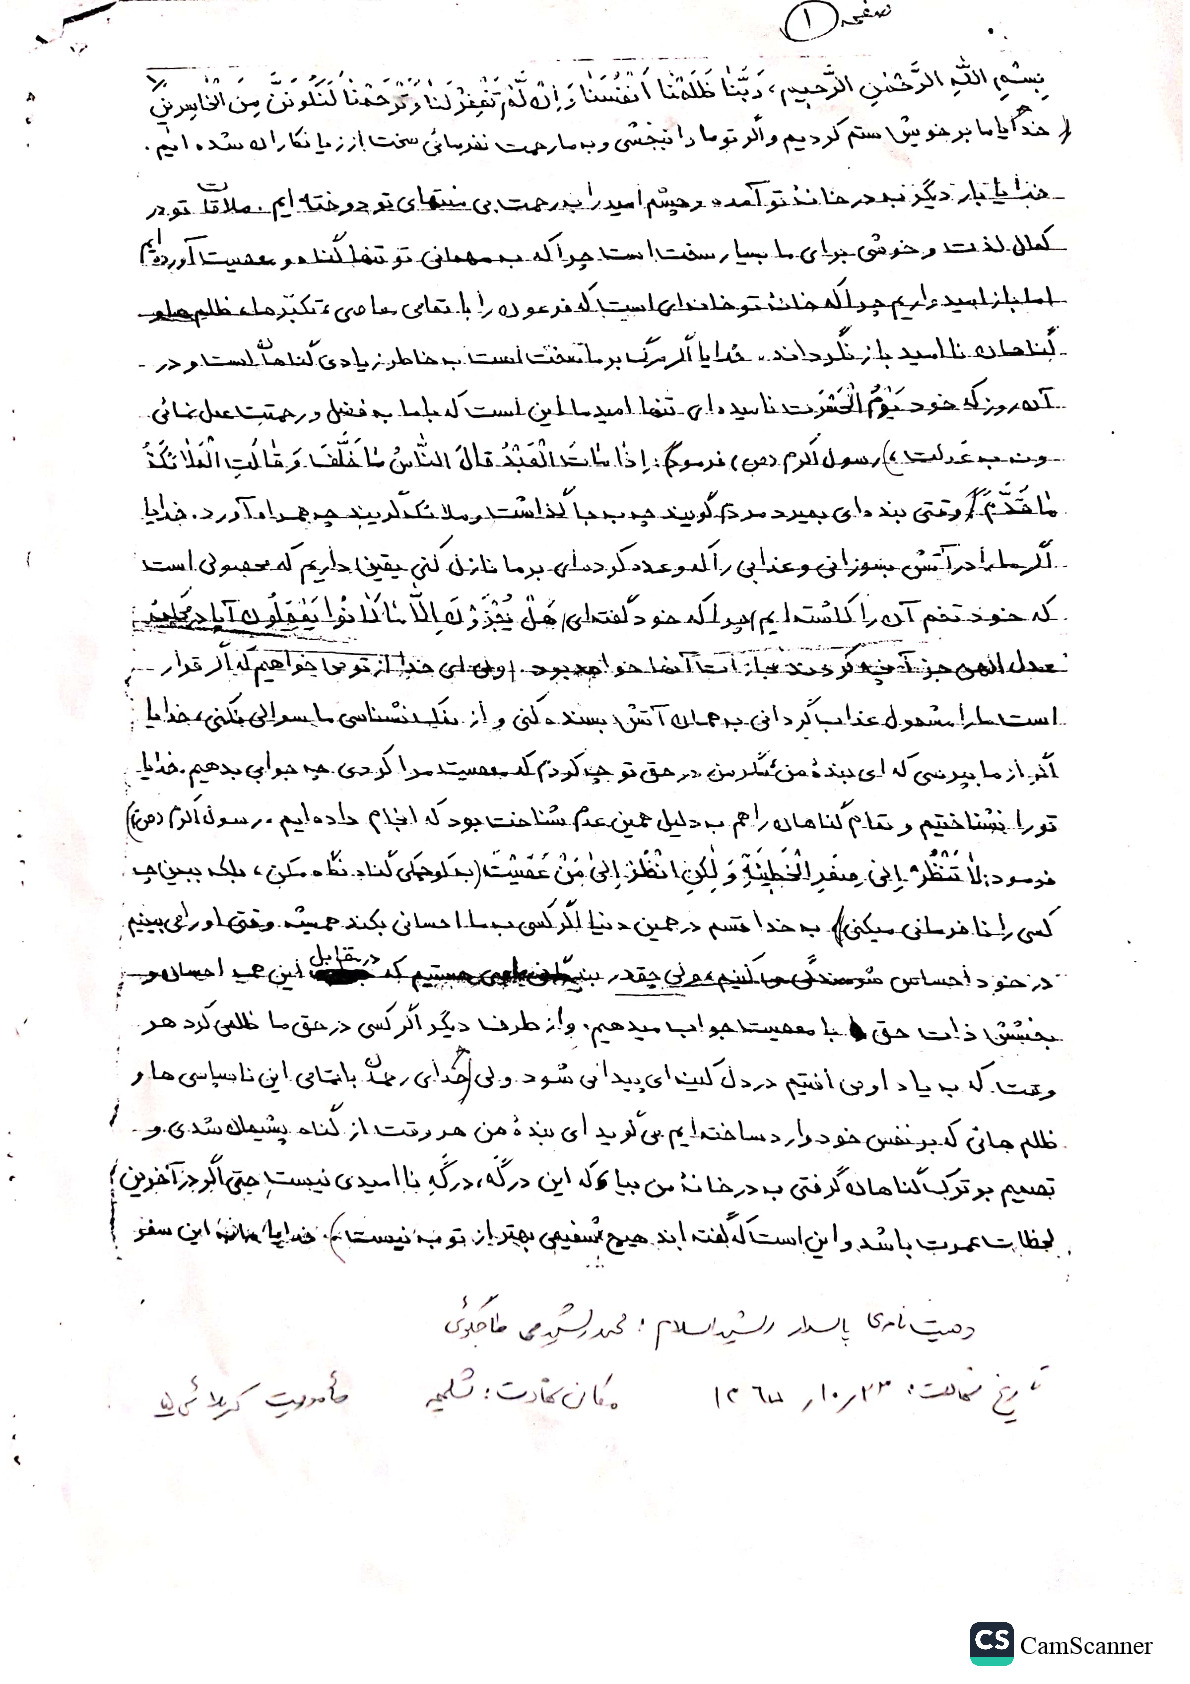 صفحه ۱
بِسْمِ اللهِ الرَّحْمٰنِ الرَّحیمِ، رَبَّنٰا ظَلَمْنٰا اَنْفُسَنٰا وَ اِنْ لَّمْ تَغْفِرْ لَنٰا وَ تَرْحَمْنٰا لَنَكُونَنَّ مِنَ الْخٰاسِرینَ
خدایا ما بر خویش ستم کردیم و اگر تو ما را نبخشی و به ما رحمت نفرمائی سخت از زیانکاران شده ایم.
خدایا بار دیگر به در خانهٔ تو آمده و چشم امید را به رحمت بی منتهای تو دوخته ایم. ملاقات تو در
کمال لذت و خوشی برای ما بسیار سخت است چرا که به مهمانی تو تنها گناه و معصیت آورده ایم
اما باز امیدواریم چرا که خانهٔ تو خانه ای است که فرعون را با تمامی معاصی، تکبّرها، ظلم ها و
گناهان ناامید باز نگرداند. خدایا اگر مرگ بر ما سخت است به خاطر زیادی گناهان است و در
آن روز که خود یَوْمُ الْحَسْرَت نامیده ای تنها امید ما این است که با ما به فضل و رحمتت عمل نمائی
و نه به عَدلت، رسول اکرم (ص) فرمود: اِذٰا مٰاتَ الْعَبْدُ قٰالَ النّٰاسُ مٰا خَلَّفَ وَ قٰالَتِ الْمَلاٰئِکَةُ
مٰا قَدَّمَ (وقتی بنده ای بمیرد مردم گویند چه به جا گذاشت و ملائکه گویند چه همراه آورد. خدایا
اگر ما را در آتش بسوزانی و عذابی را که وعده کرده ای بر ما نازل کنی یقین داریم که محصولی است
که خود تخم آن را کاشته ایم چرا که خود گفته ای هَلْ یُجْزَوْنَ اِلّٰا مٰا کٰانُوا یَعْمَلُونَ آیا در
عدل الهی جز آنچه کردند مجازات آنها خواهد بود. ولی ای خدا از تو می خواهیم که اگر قرار
است ما را مشمول عذاب گردانی به همان آتش بسنده کنی و از نمک نشناسی ما سوالی نکنی، خدایا
اگر از ما بپرسی که ای بندهٔ من مگر من در حق تو چه کردم که معصیت مرا کردی چه جوابی بدهیم. خدایا
تو را نشناختیم و تمام گناهان را هم به دلیل همین عدم شناخت بود که انجام داده ایم. رسول اکرم (ص)
فرمود: لاٰ تَنْظُرْ اِلیٰ صِغَرِ الْخَطیئَةِ وَ لٰکِنِ انْظُرْ اِلیٰ مَنْ عَصَیْتَ (به کوچکی گناه نگاه مکن، بلکه ببین چه
کسی را نافرمانی میکنی) به خدا قسم در همین دنیا اگر کسی به ما احسانی بکند همیشه وقتی او را می بینیم
در خود احساس شرمندگی می کنیم، ولی چقدر هستیم که در مقابل این همه احسان و
بخشش ذات حق با معصیت جواب میدهیم. و از طرف دیگر اگر کسی در حق ما ظلمی کرد هر
وقت که به یاد او می افتیم در دل کینه ای پیدا می شود ولی خدای رحمان با تمامی این ناسپاسی ها و
ظلم هائی که بر نفس خود وارد ساخته ایم می گوید ای بندهٔ من هر وقت از گناه پشیمان شدی و
تصمیم بر ترک گناهان گرفتی به در خانهٔ من بیا که این درگه، درگهِ ناامیدی نیست حتی اگر در آخرین
لحظات عمرت باشد و این است که گفته اند هیچ شفیعی بهتر از توبه نیست). خدایا این سفر
وصیت نامه پاسدار رشید اسلام : محمد
تاریخ شهادت: ۱۳۶۵/۱۰/۲۳ مکان شهادت: شلمچه مأموریت کربلای ۵
CS CamScanner